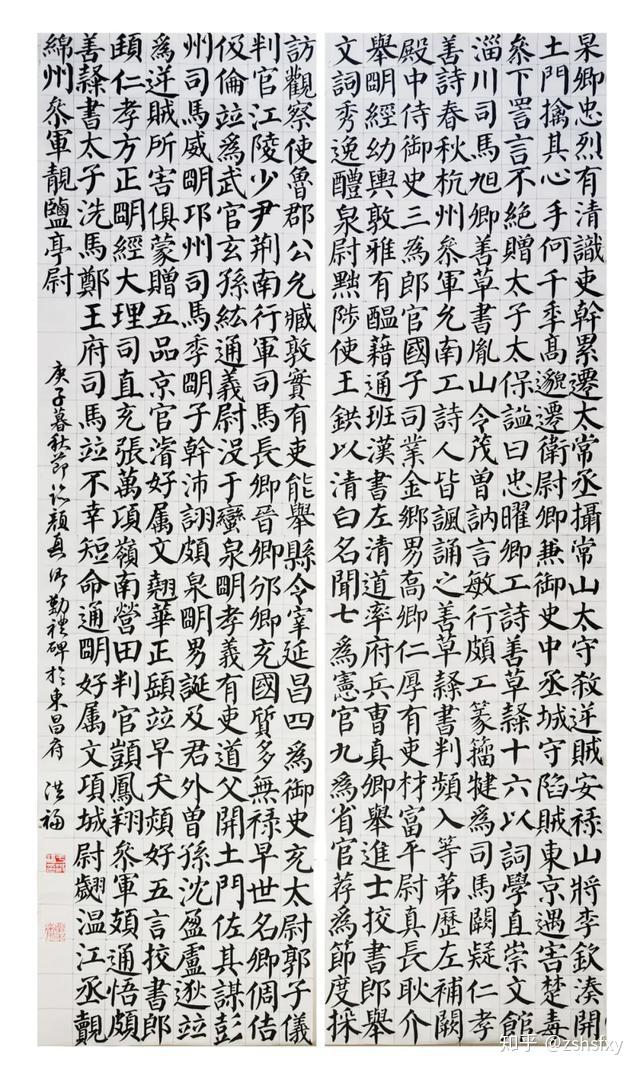 杲卿忠烈有清識吏幹累遷太常丞攝常山太守殺逆賊安禄山將李欽湊開
土門擒其心手何千季高邈遷衛尉卿兼御史中丞城守陷賊東京遇害楚毒
參下詈言不絕贈太子太保謚曰忠曜卿工詩善草隸十六以詞學直崇文館
淄川司馬旭卿善草書胤山令茂曾訥言敏行頗工篆籀犍為司馬闕疑仁孝
善詩春秋杭州參軍允南工詩人皆諷誦之善草隸書判頻入等第歷左補闕
殿中侍御史三為郎官國子司業金鄉男喬卿仁厚有吏材富平尉真長耿介
舉明經幼輿敦雅有醖藉通班漢書左清道率府兵曹真卿舉進士挍書郎舉
文詞秀逸醴泉尉黜陟使王鉷以清白名聞七為憲官九為省官荐為節度採
訪觀察使魯郡公允臧敦實有吏能舉縣令宰延昌四為御史充太尉郭子儀
判官江陵少尹荊南行軍司馬長卿晉卿邠卿充國質多無禄早世名卿倜佶
伋倫竝為武官玄孫紘通義尉没于蠻泉明孝義有吏道父開土門佐其謀彭
州司馬威明邛州司馬季明子幹沛詡頗泉明男誕及君外曾孫沈盈盧逖竝
為逆賊所害俱蒙贈五品京官濬好属文翹華正頣竝早夭熲好五言挍書郎
頲仁孝方正明經大理司直充張萬項嶺南營田判官顗鳳翔參軍頗通悟頗
善隸書太子洗馬鄭王府司馬竝不幸短命通明好属文項城尉翽温江丞覿
綿州參軍靚鹽亭尉
庚子暮秋節臨顏真卿勤禮碑於東昌府 洪福
知乎 @zshsfxy